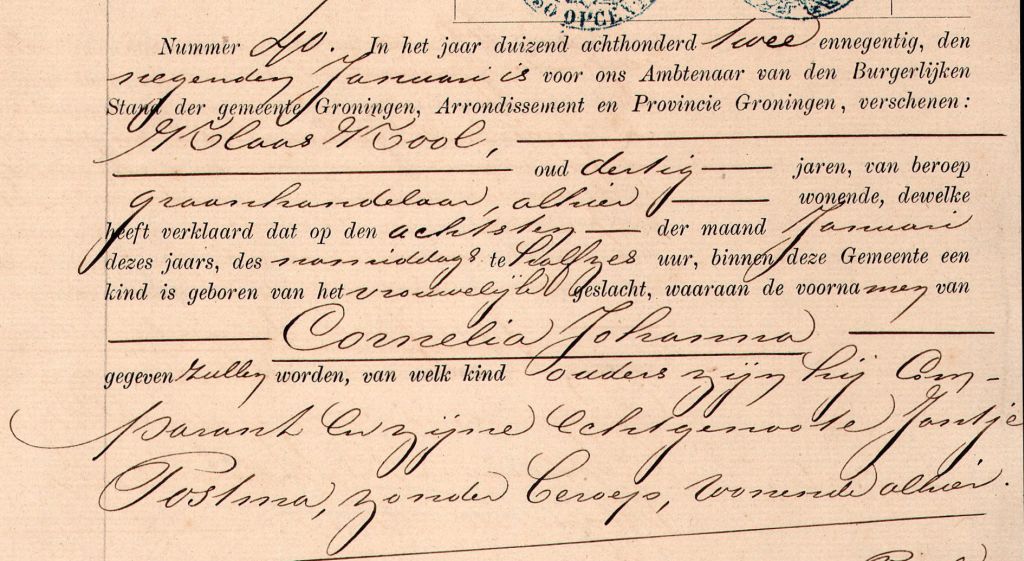 50 OPCEN
Nummer 40. In het jaar duizend achthonderd twee ennegentig, den
negenden Januari is voor ons Ambtenaar van den Burgerlijken
Stand der gemeente Groningen, Arrondissement en Provincie Groningen, verschenen:
Klaas Kool,
oud dertig jaren, van beroep
graanhandelaar, alhier wonende, dewelke
heeft verklaard dat op den achtsten der maand Januari
dezes jaars, des namiddags te halfzes uur, binnen deze Gemeente een
kind is geboren van het vrouwelijk geslacht, waaraan de voornamen van
Cornelia Johanna
gegeven zullen worden, van welk kind ouders zijn hij Com-
parant en zijne echtgenoote Jantje
Postma, zonder beroep, wonende alhier.